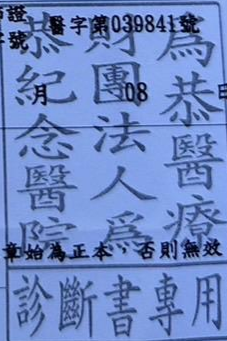 證
號
醫字第039841號
月 08 日
為恭醫療
財團法人爲
恭紀念醫院
章始為正本 否則無效
診斷書專用